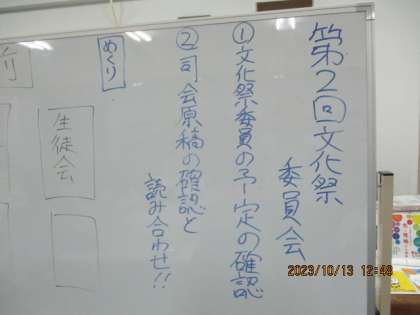 第2回文化祭
委員会
①文化祭委員の予定の確認
②司会原稿の確認と
読み合わせ!!
めくり
生徒会
2023/10/13 12:48